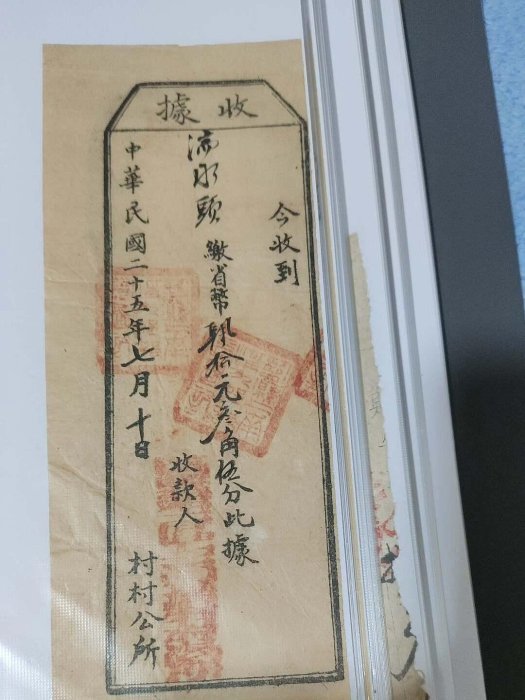 收據
今收到
流水頭繳省幣肆拾元叁角伍分此據
收款人
中華民國二十五年七月十日
村村公所